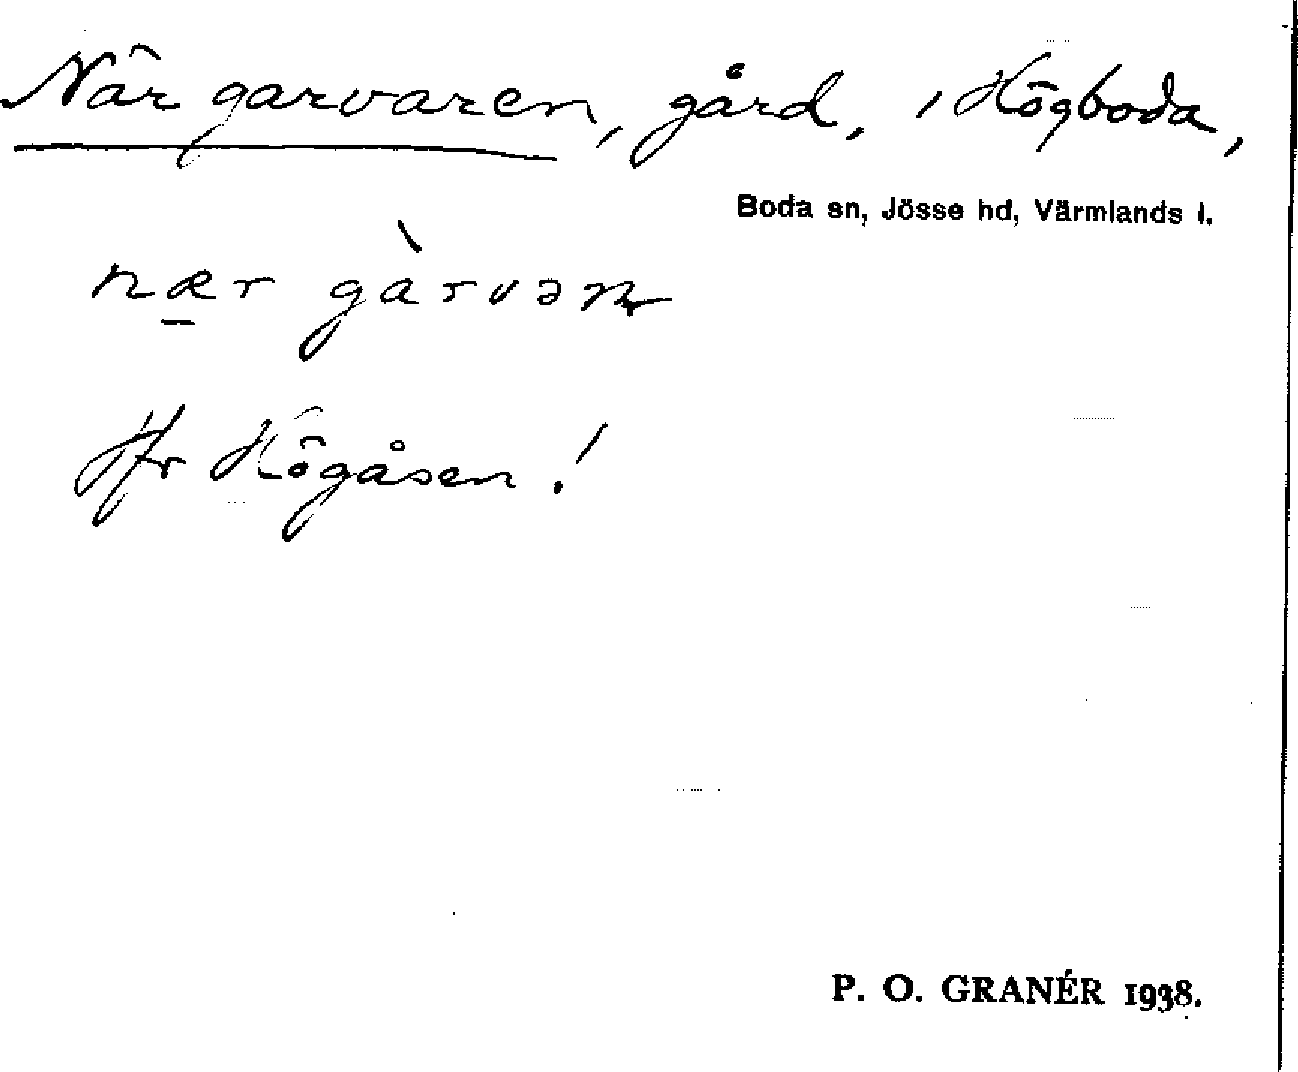 När garvaren, gård, i Högboda,
Boda sn, Jösse hd, Värmlands l.
næ̱r gàrvən
Jfr Högåsen!
P. O. GRANÉR 1938.